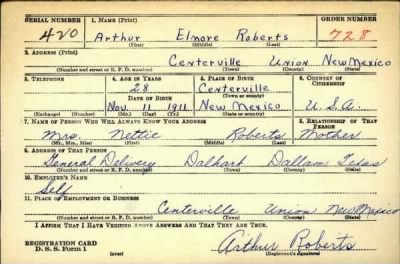 SERIAL NUMBER 1. NAME (Print) ORDER NUMBER
420 Arthur Elmore Roberts 728
(First) (Middle) (Last)
2. ADDRESS (Print)
Centerville Union New Mexico
(Number and street or R. F. D. number) (Town) (County) (State)
3. TELEPHONE 4. AGE IN YEARS 5. PLACE OF BIRTH 6. COUNTRY OF CITIZENSHIP
28 Centerville
DATE OF BIRTH (Town or county)
Nov. 11 1911 New Mexico U.S.A.
(Exchange) (Number) (Mo.) (Day) (Yr.) (State or country)
7. NAME OF PERSON WHO WILL ALWAYS KNOW YOUR ADDRESS 8. RELATIONSHIP OF THAT PERSON
Mrs. Nettie Roberts Mother
(Mr., Mrs., Miss) (First) (Middle) (Last)
9. ADDRESS OF THAT PERSON
General Delivery Dalhart Dallam Texas
(Number and street or R. F. D. number) (Town) (County) (State)
10. EMPLOYER'S NAME
Self
11. PLACE OF EMPLOYMENT OR BUSINESS
Centerville Union New Mexico
(Number and street or R. F. D. number) (Town) (County) (State)
I AFFIRM THAT I HAVE VERIFIED ABOVE ANSWERS AND THAT THEY ARE TRUE.
REGISTRATION CARD
D. S. S. Form 1 Arthur Roberts
(Registrant's signature)